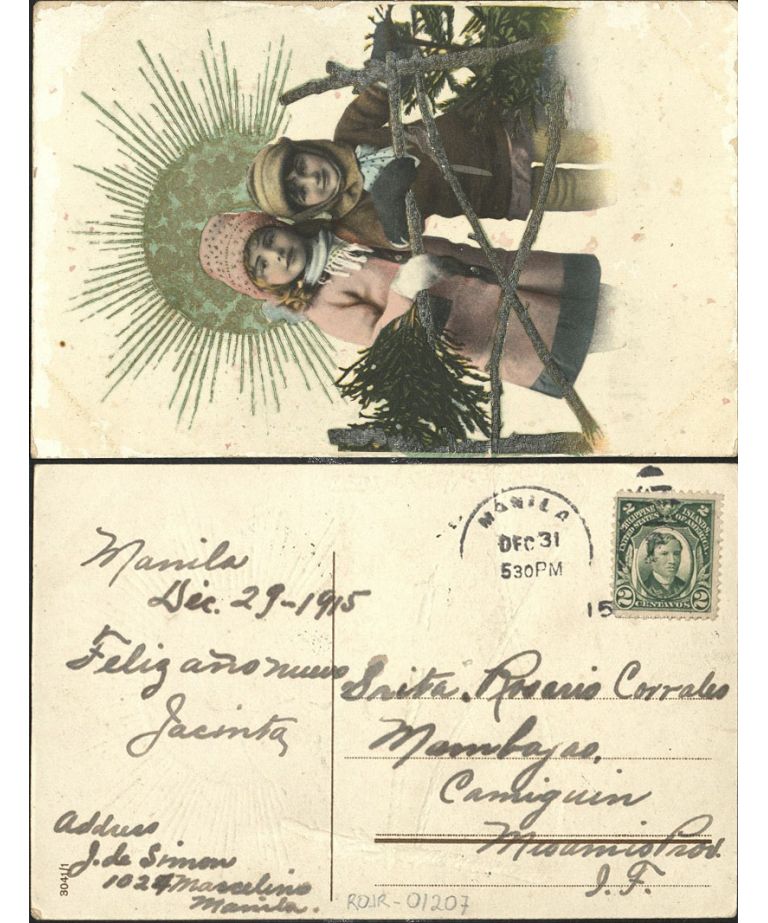 Manila
Dec. 29-1915
Feliz año nuevo
Jacinta
Address
J. de Simon
Marcelino
Manila.
3041/1
MANILA
DEC 31
530PM
15
2 2
PHILIPPINE ISLANDS
UNITED STATES OF AMERICA
2 CENTAVOS 2
Srita. Rosario Corrales
Mambajao,
Camiguin
Misamis Prov.
ROJR-01207